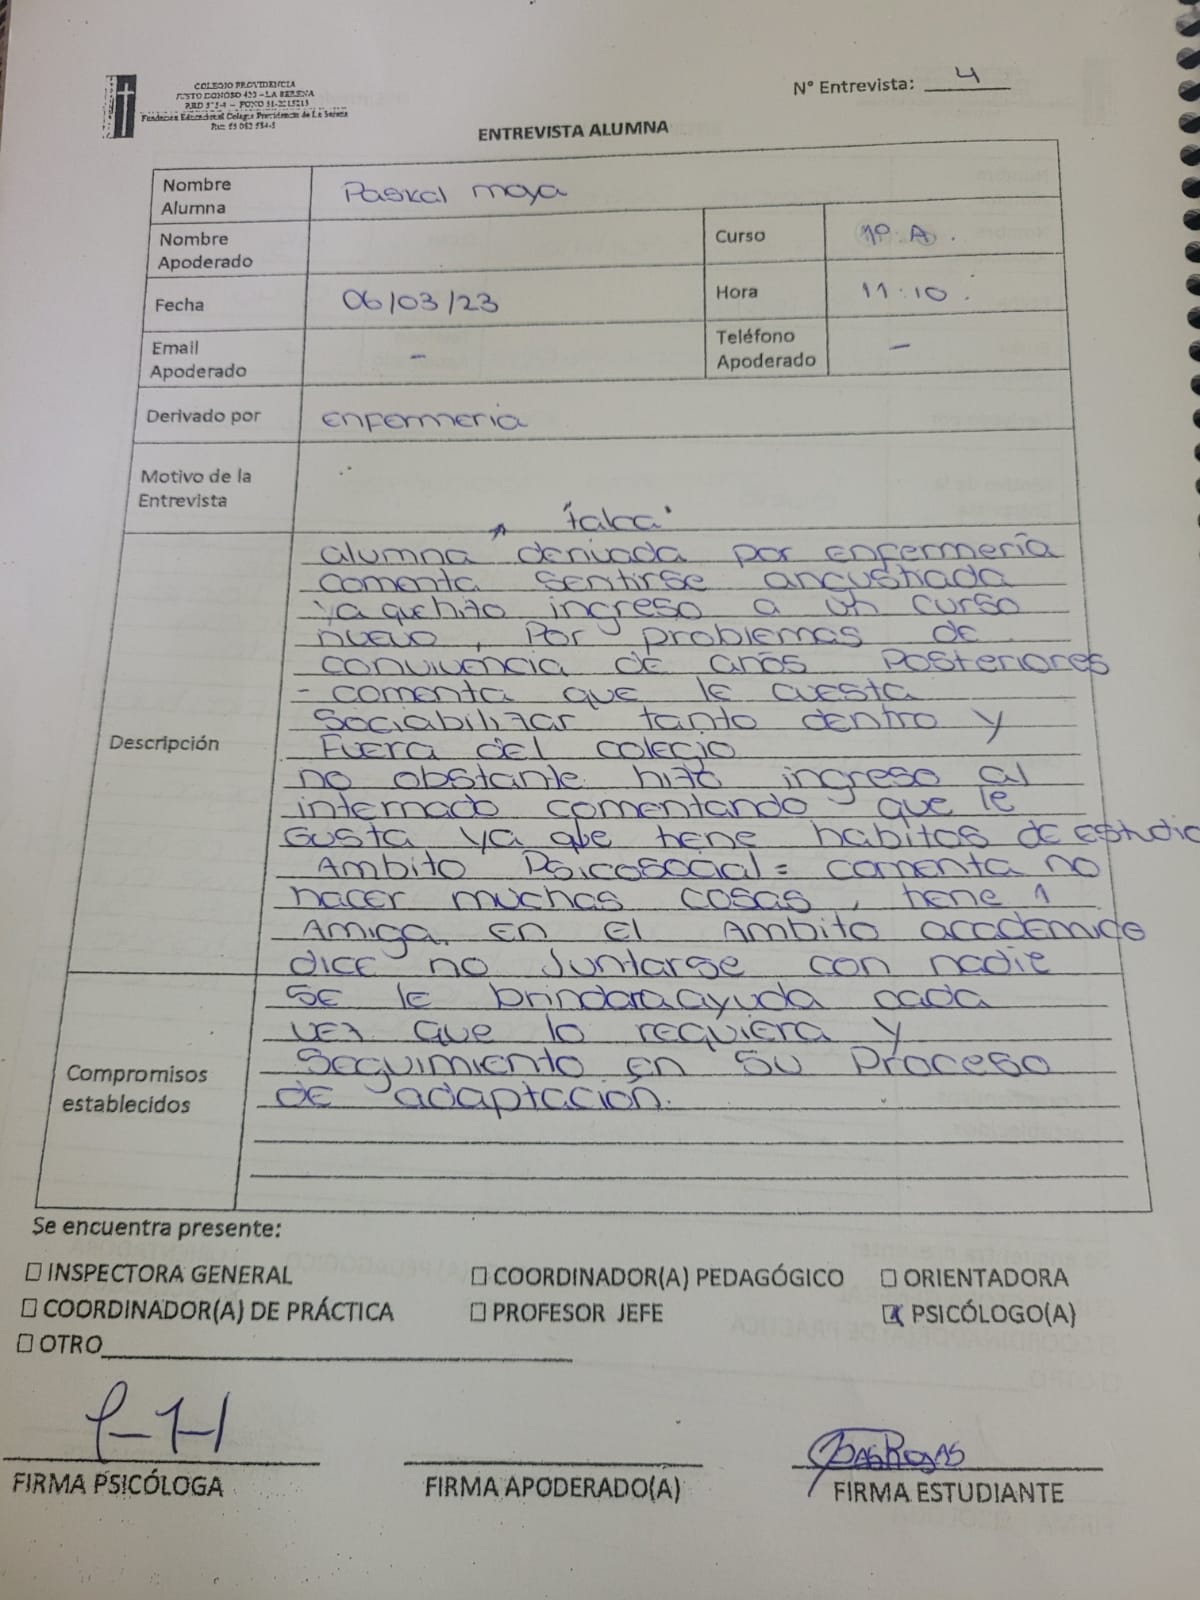 COLEGIO PROVIDENCIA
JUSTO DONOSO 420 – LA SERENA
Fundación Educacional Colegio Providencia de La Serena
N° Entrevista: 4
ENTREVISTA ALUMNA
Nombre Alumna Paskal moya
Nombre Apoderado
Curso 1º A.
Fecha 06/03/23
Hora 11:10.
Email Apoderado -
Teléfono Apoderado -
Derivado por Enfermeria
Motivo de la Entrevista
Descripción
"talca"
alumna derivada por enfermería
comenta sentirse angustiada
ya que hizo ingreso a un curso
nuevo, Por problemas de
convivencia de anõs Posteriores
- comenta que le cuesta
Sociabilizar tanto dentro y
Fuera del colegio
no obstante hizo ingreso al
internado comentando que le
Gusta ya que tiene habitos de estudio
Ambito Psicosocial = comenta no
hacer muchas cosas, tiene 1
Amiga. En el Ambito academico
dice no Juntarse con nadie
Compromisos establecidos
Se le brindara ayuda cada
vez que lo requiera y
Seguimiento en su Proceso
de adaptación.
Se encuentra presente:
☐ INSPECTORA GENERAL ☐ COORDINADOR(A) PEDAGÓGICO ☐ ORIENTADORA
☐ COORDINADOR(A) DE PRÁCTICA ☐ PROFESOR JEFE ☒ PSICÓLOGO(A)
☐ OTRO
FIRMA PSICÓLOGA FIRMA APODERADO(A) FIRMA ESTUDIANTE